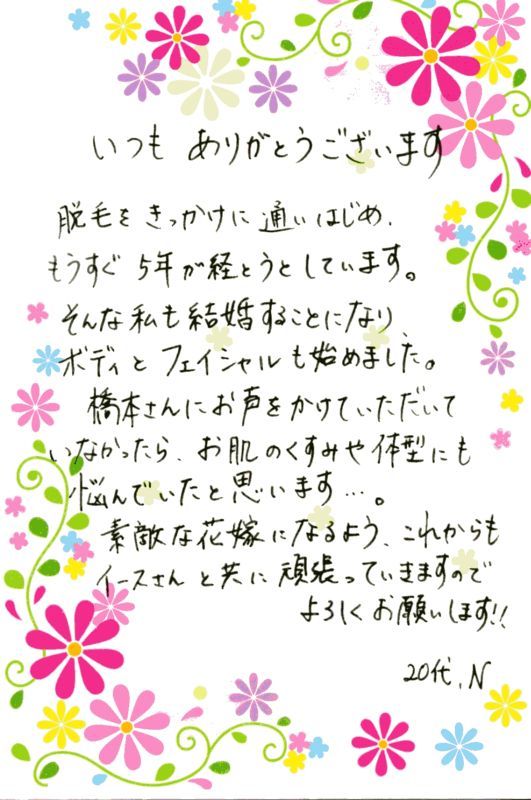 いつも ありがとうございます
脱毛をきっかけに通いはじめ、
もうすぐ5年が経とうとしています。
そんな私も結婚することになり、
ボディとフェイシャルも始めました。
橋本さんにお声をかけていただいて
いなかったら、お肌のくすみや体型にも
悩んでいたと思います…。
素敵な花嫁になるよう、これからも
イースさんと共に頑張っていきますので
よろしくお願いします!!
20代、N